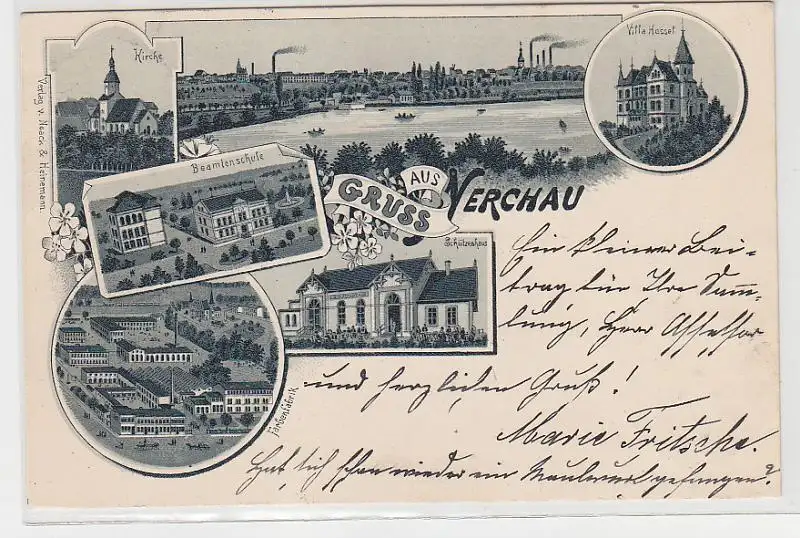 Kirche
Villa Hasset
Verlag v. Naeck & Heinemann.
Beamtenschule
GRUSS
AUS
NERCHAU
Schützenhaus
Farbenfabrik
Ein kleiner Bei-
trag für Ihre Samm-
lung, Herr Assessor
und herzlichen Gruß!
Marie Fritsche.
Hat sich schon wieder ein Maulwurf gefangen?